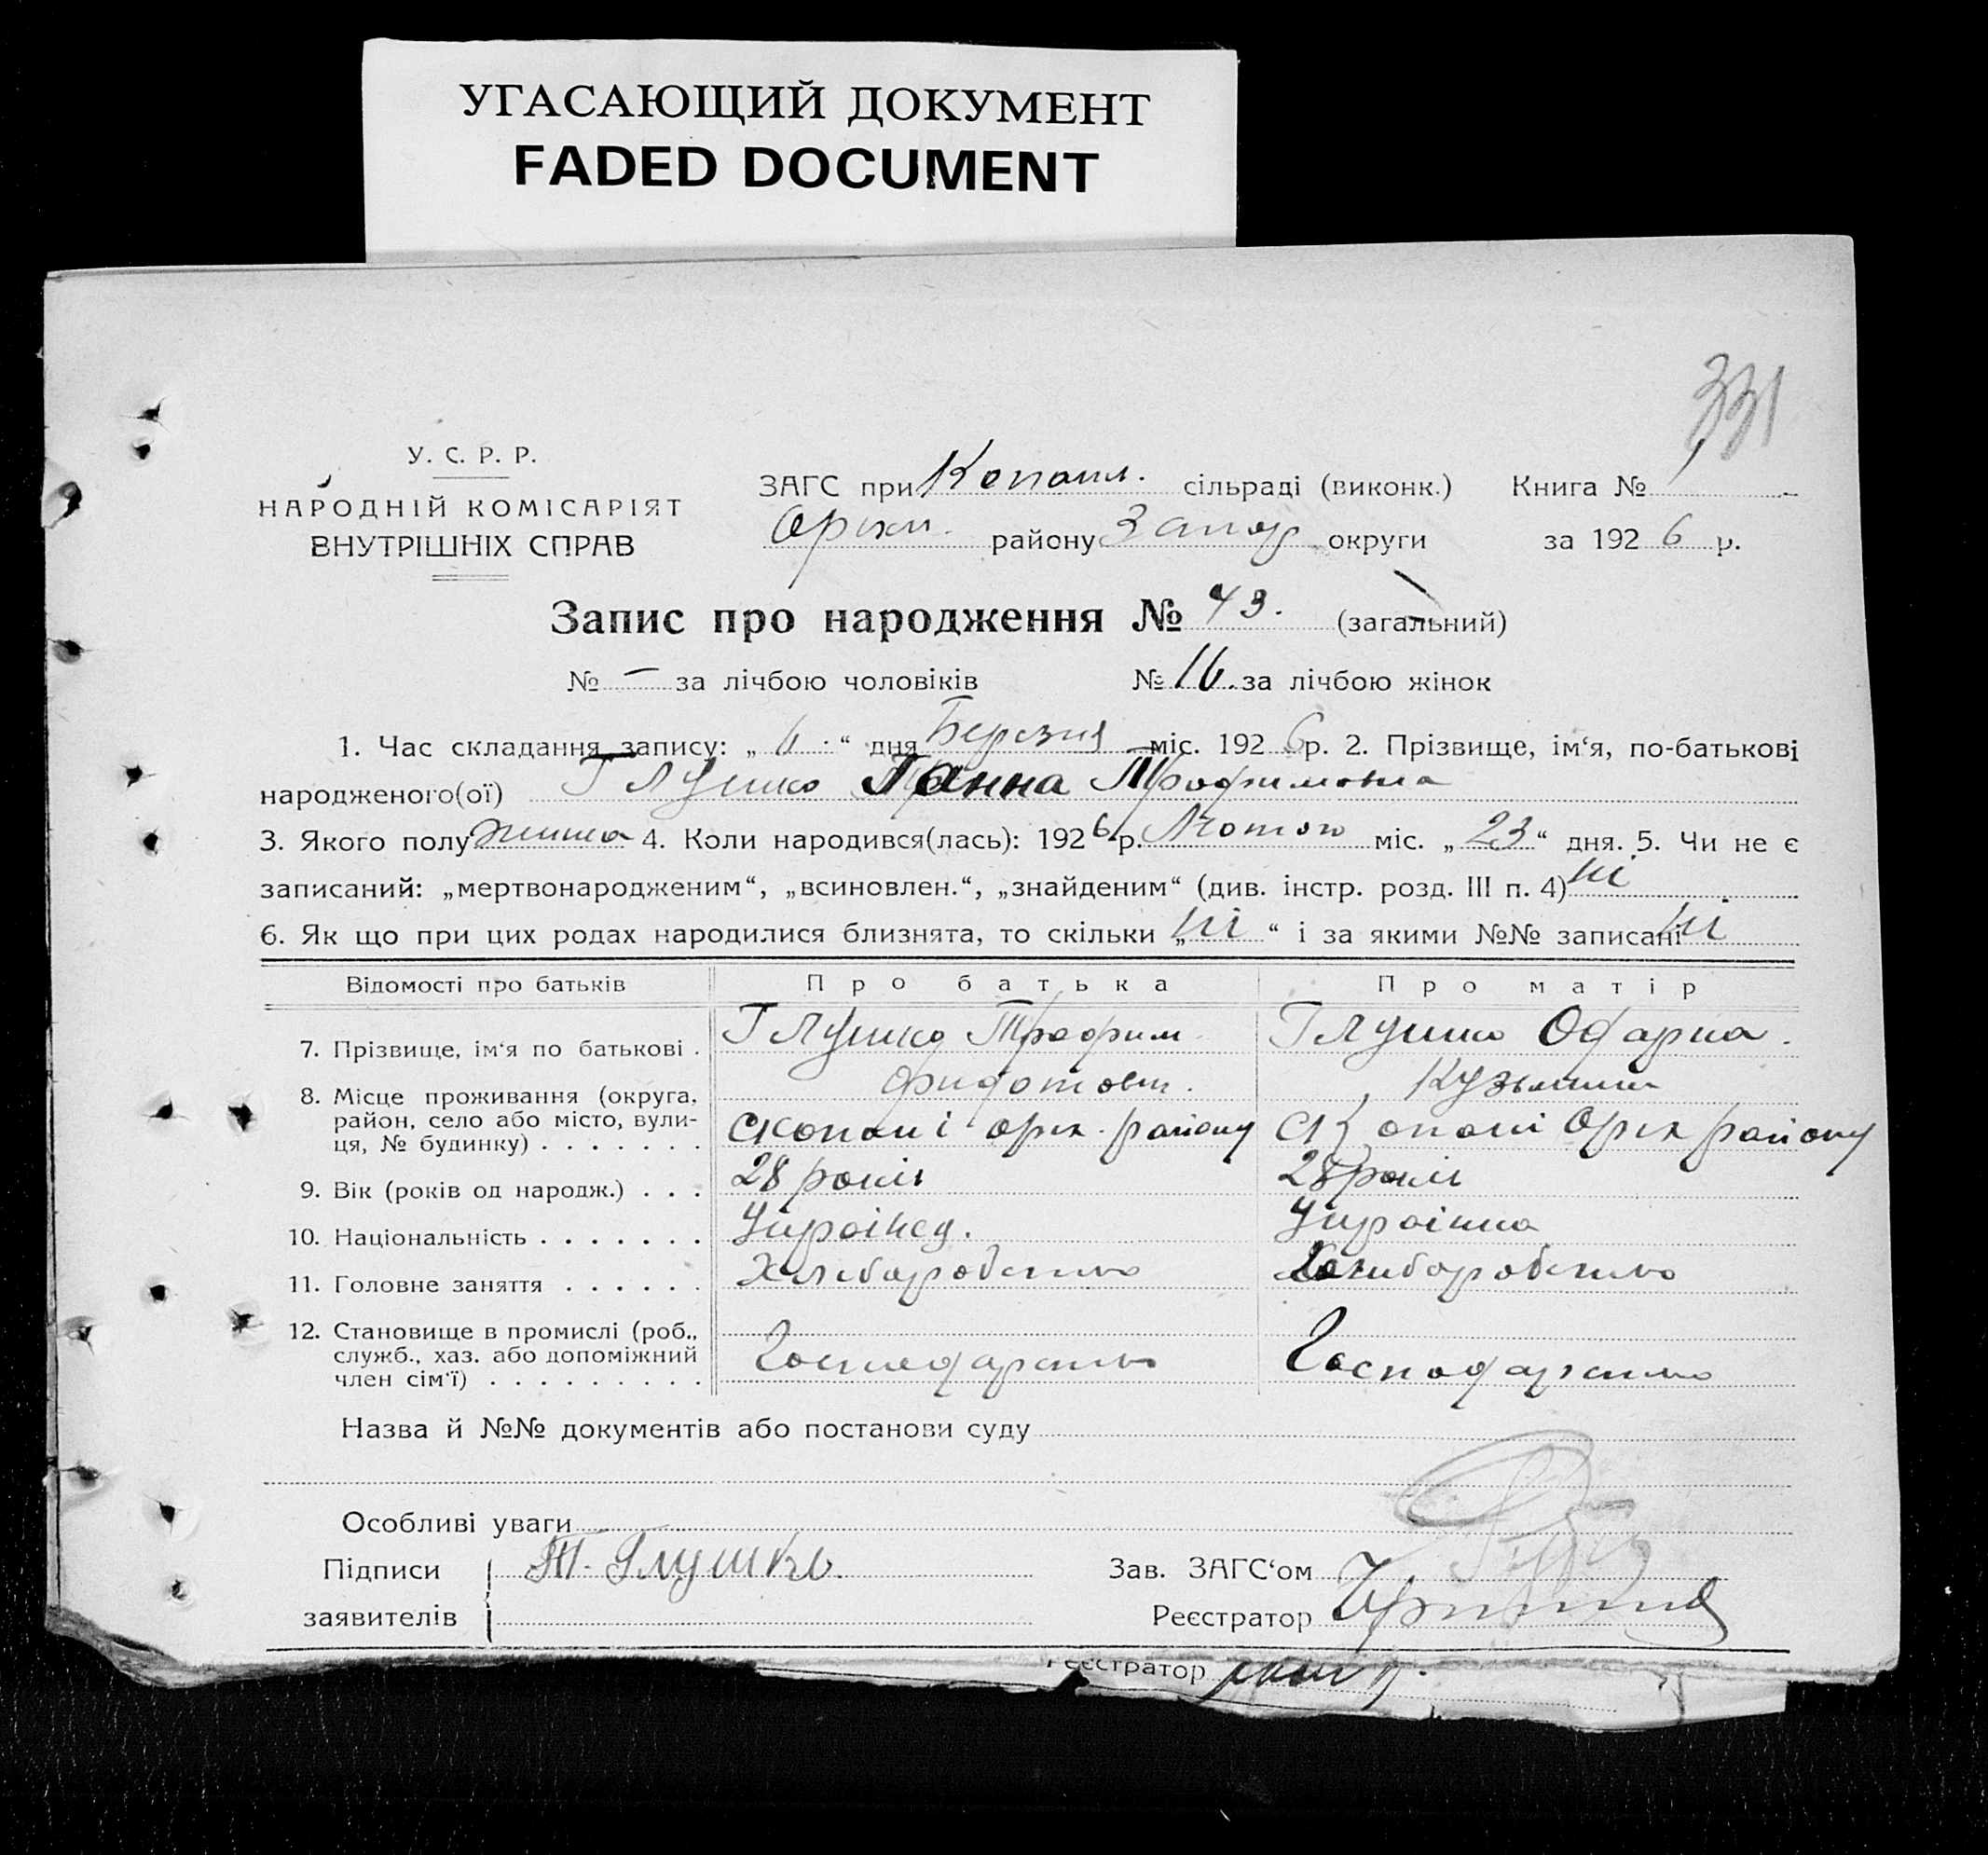 УГАСАЮЩИЙ ДОКУМЕНТ
FADED DOCUMENT
331
У. С. Р. Р.
НАРОДНІЙ КОМІСАРІЯТ
ВНУТРІШНІХ СПРАВ
ЗАГС при Копан. сільраді (виконк.) Книга №
Оріхи. району Запор округи за 1926 р.
Запис про народження № 43. (загальний)
№ — за лічбою чоловіків № 16. за лічбою жінок
1. Час складання запису: „ 6 “ дня Березня міс. 1926 р. 2. Прізвище, ім‘я, по-батькові
народженого(ої) Глушко Ганна Трофимовна
3. Якого полу жиноча 4. Коли народився(лась): 1926 р. Лютого міс. „ 23 “ дня. 5. Чи не є
записаний: „мертвонародженим“, „всиновлен.“, „знайденим“ (див. інстр. розд. III п. 4) ні
6. Як що при цих родах народилися близнята, то скільки „ ні “ і за якими №№ записані ні
Відомості про батьків Про батька Про матір
7. Прізвище, ім‘я по батькові . Глушко Трофим Глушко Одарка.
Фидотови. Кузьминш
8. Місце проживання (округа, район, село або місто, вулиця, № будинку) . . . . . . . С Копані Оріх. району С Копані Оріх району
9. Вік (років од народж.) . . . 28 років 28 років
10. Національність . . . . . . . Украінец. Украінка
11. Головне заняття . . . . . . Хлиборобство Хлиборобство
12. Становище в промислі (роб., служб., хаз. або допоміжний член сім‘ї) . . . . . . . . . Господарство Господарство
Назва й №№ документів або постанови суду
Особливі уваги
Підписи Т. Глушко. Зав. ЗАГС‘ом
заявителів Реєстратор
Реєстратор